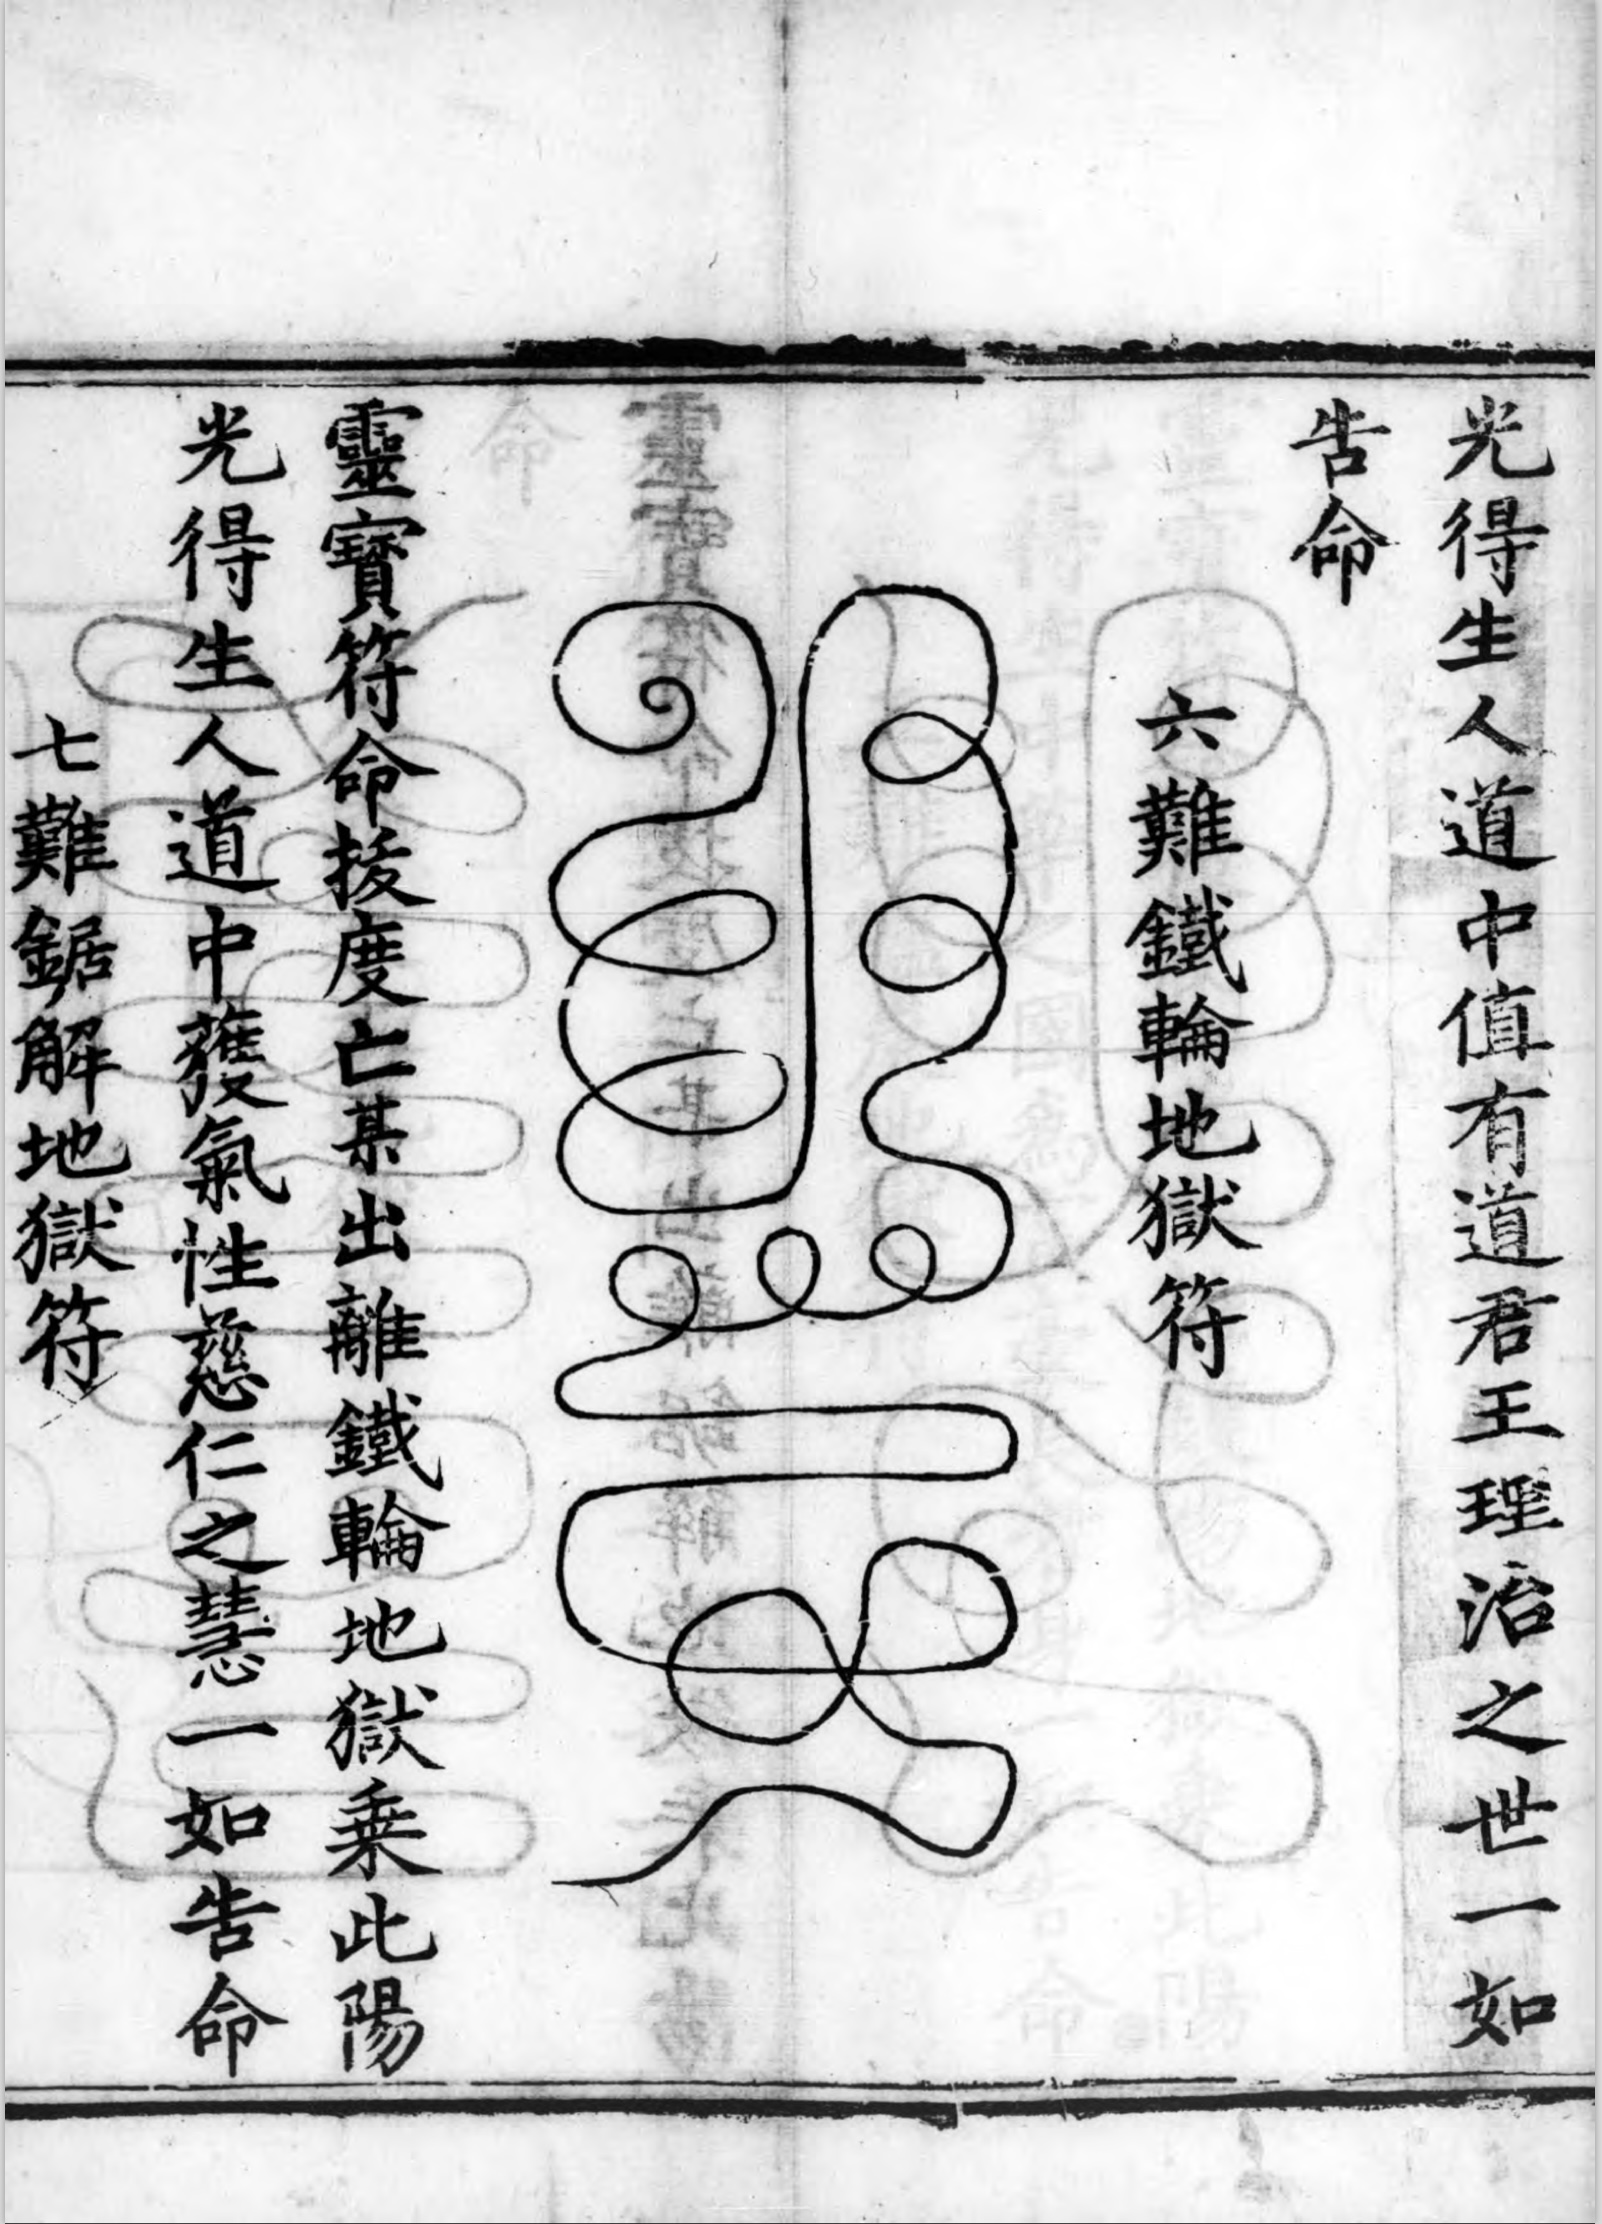 光得生人道中值有道君王理治之世一如
告命
六難鐵輪地獄符
靈寶符命拔度亡某出離鐵輪地獄乗此陽
光得生人道中蕿氣性慈仁之慧一如告命
七難鋸解地獄符